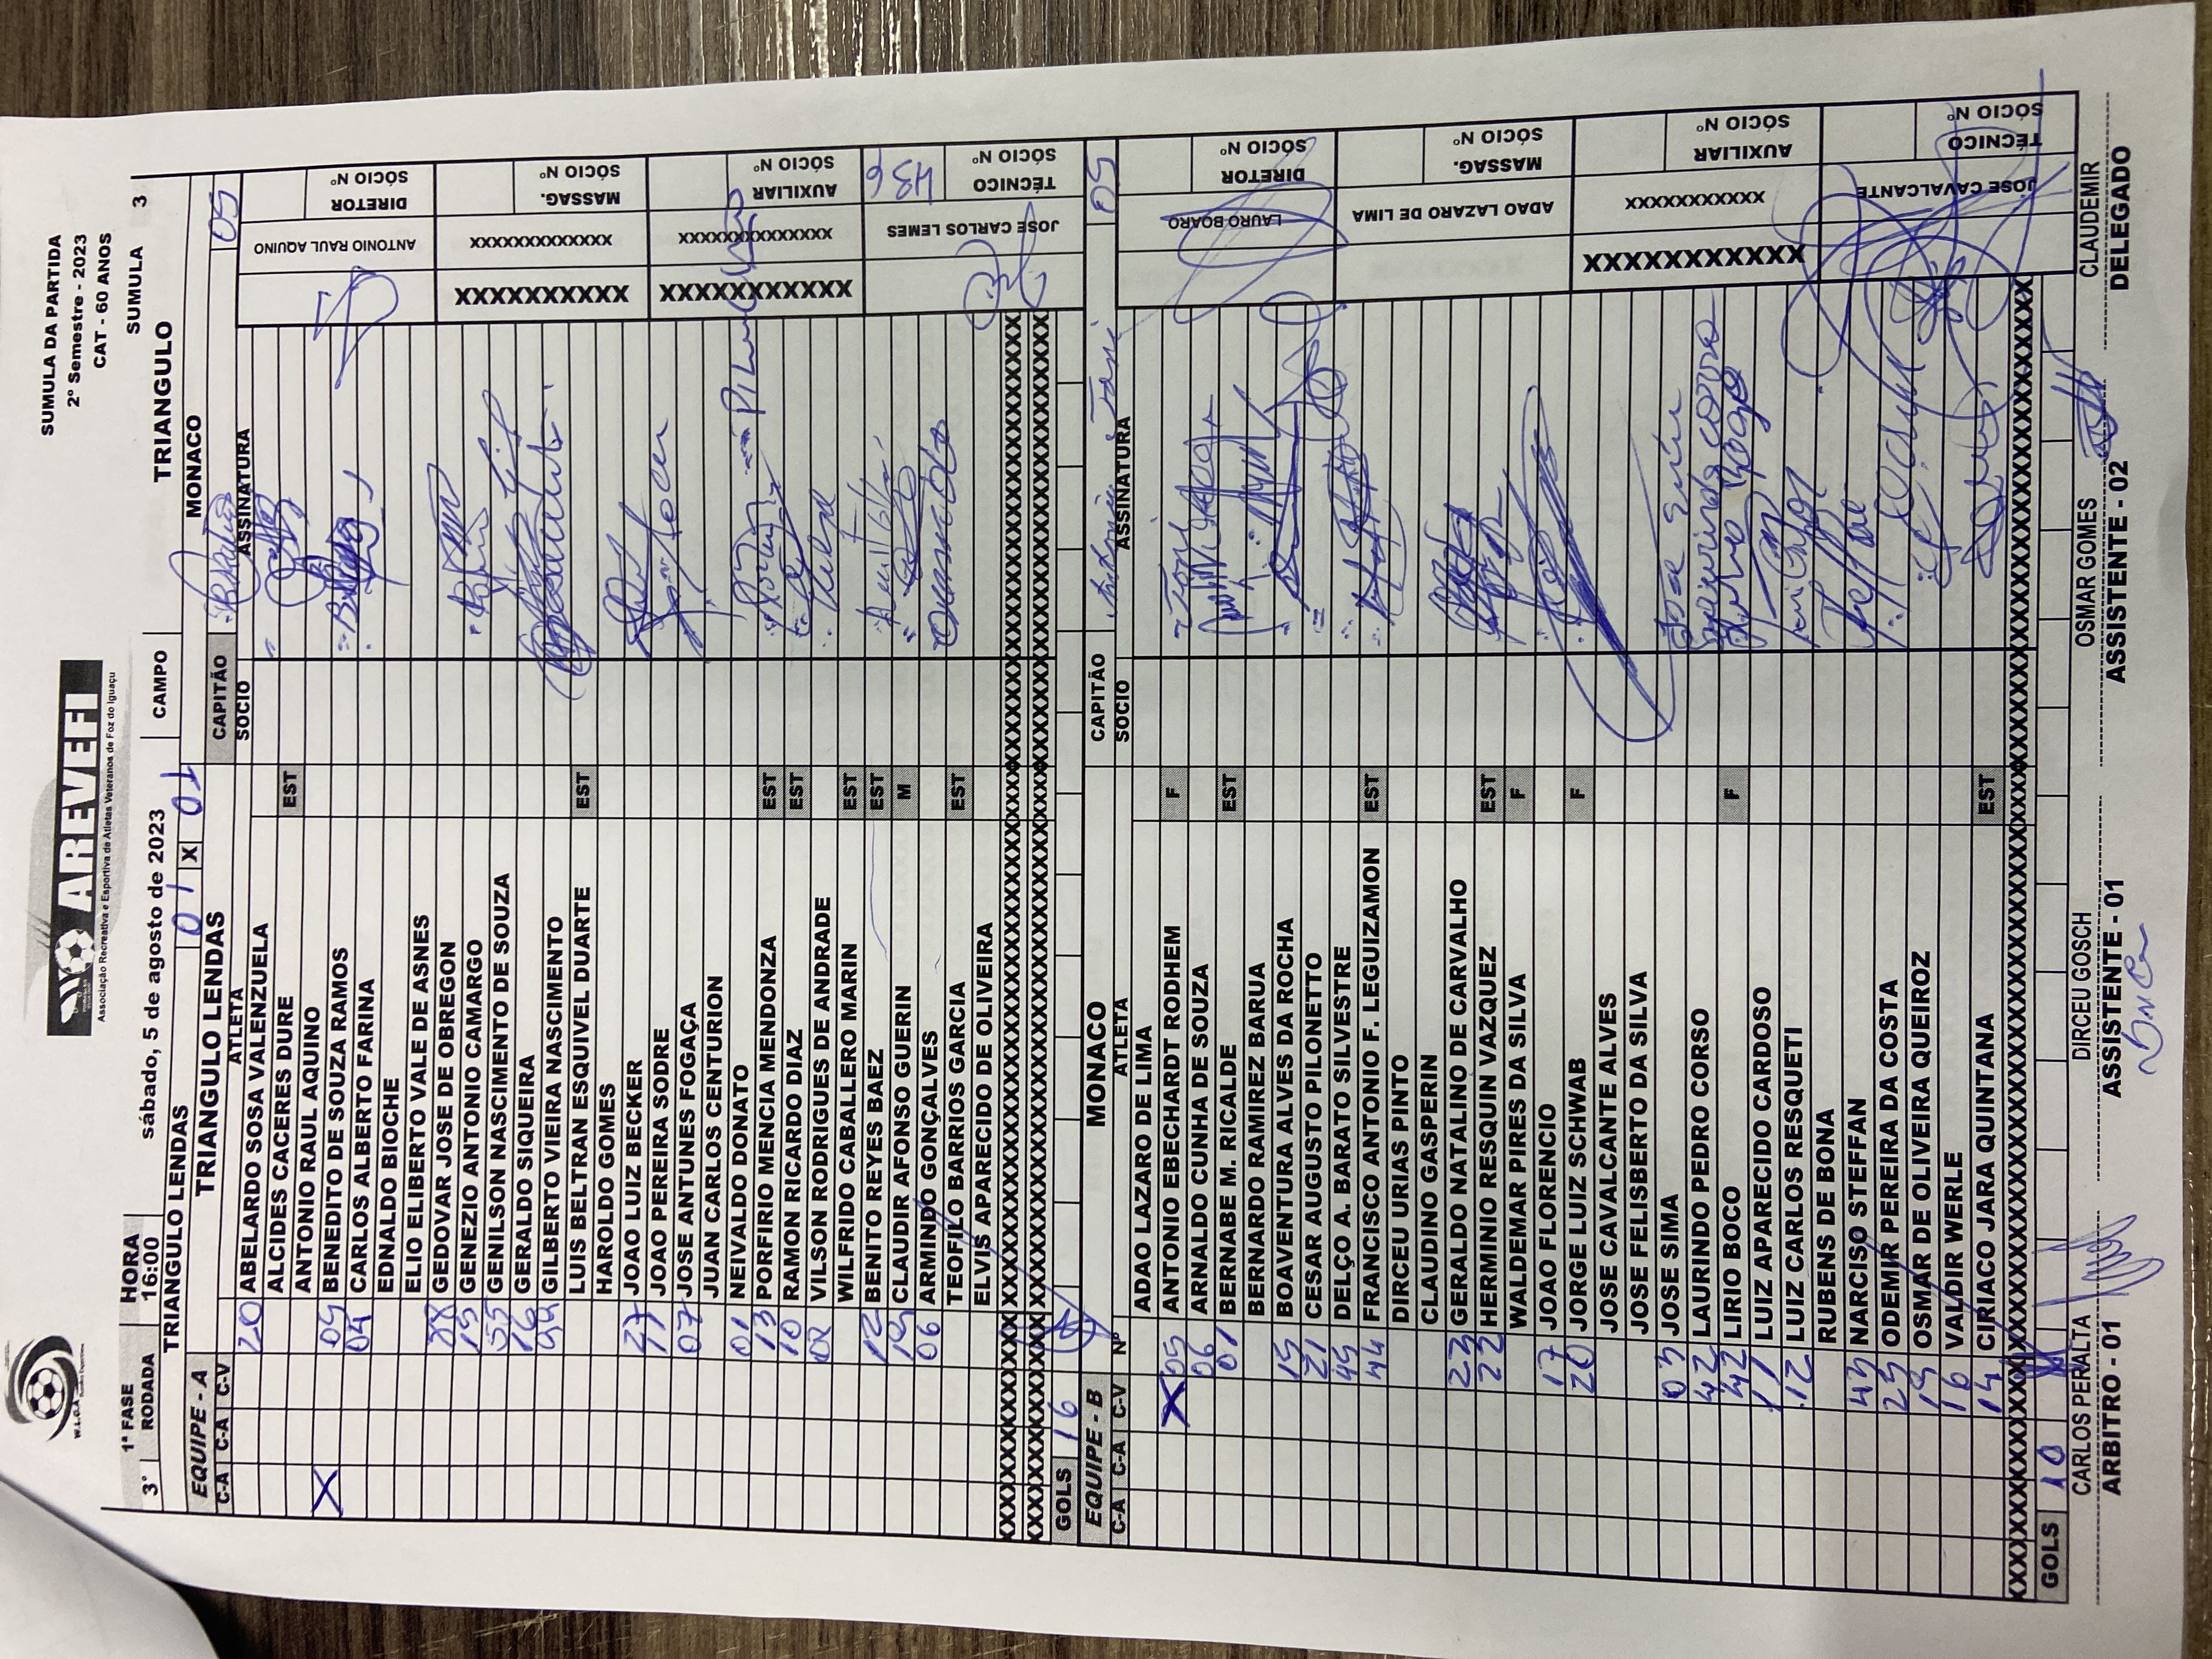 W.L.C.A.
AREVEFI
Associação Recreativa e Esportiva de Atletas Veteranos de Foz do Iguaçu
SUMULA DA PARTIDA
2º Semestre - 2023
CAT - 60 ANOS
1ª FASE HORA SUMULA 3
3º RODADA 16:00 sábado, 5 de agosto de 2023 CAMPO TRIANGULO
TRIANGULO LENDAS 01 X 01 MONACO
EQUIPE - A TRIANGULO LENDAS CAPITÃO 05
C-A C-A C-V ATLETA SOCIO ASSINATURA
20 ABELARDO SOSA VALENZUELA
ALCIDES CACERES DURE EST
ANTONIO RAUL AQUINO
X 05 BENEDITO DE SOUZA RAMOS
04 CARLOS ALBERTO FARINA
EDNALDO BIOCHE
ELIO ELIBERTO VALE DE ASNES
GEDOVAR JOSE DE OBREGON
15 GENEZIO ANTONIO CAMARGO
55 GENILSON NASCIMENTO DE SOUZA
16 GERALDO SIQUEIRA
99 GILBERTO VIEIRA NASCIMENTO
LUIS BELTRAN ESQUIVEL DUARTE EST
HAROLDO GOMES
27 JOAO LUIZ BECKER
11 JOAO PEREIRA SODRE
07 JOSE ANTUNES FOGAÇA
JUAN CARLOS CENTURION
01 NEIVALDO DONATO
13 PORFIRIO MENCIA MENDONZA EST
10 RAMON RICARDO DIAZ EST
02 VILSON RODRIGUES DE ANDRADE
WILFRIDO CABALLERO MARIN EST
12 BENITO REYES BAEZ EST
19 CLAUDIR AFONSO GUERIN M
06 ARMINDO GONÇALVES
TEOFILO BARRIOS GARCIA EST
ELVIS APARECIDO DE OLIVEIRA
XXXXXXXXXXXXXXXXXXXXXXXX
XXXXXXXXXXXXXXXXXXXXXXXX
GOLS 16
ANTONIO RAUL AQUINO
DIRETOR
SÓCIO Nº
XXXXXXXXXX
XXXXXXXXXXXXX
MASSAG.
SÓCIO Nº
XXXXXXXXXXX
XXXXXXXXXXXXXX
AUXILIAR
SÓCIO Nº
JOSE CARLOS LEMES
436
TÉCNICO
SÓCIO Nº
EQUIPE - B MONACO CAPITÃO 05
C-A C-A C-V Nº ATLETA SOCIO ASSINATURA
ADAO LAZARO DE LIMA
X 05 ANTONIO EBECHARDT RODHEM F
06 ARNALDO CUNHA DE SOUZA
01 BERNABE M. RICALDE EST
BERNARDO RAMIREZ BARUA
15 BOAVENTURA ALVES DA ROCHA
21 CESAR AUGUSTO PILONETTO
45 DELÇO A. BARATO SILVESTRE
44 FRANCISCO ANTONIO F. LEGUIZAMON EST
DIRCEU URIAS PINTO
CLAUDINO GASPERIN
23 GERALDO NATALINO DE CARVALHO
22 HERMINIO RESQUIN VAZQUEZ EST
WALDEMAR PIRES DA SILVA F
17 JOAO FLORENCIO
20 JORGE LUIZ SCHWAB F
JOSE CAVALCANTE ALVES
JOSE FELISBERTO DA SILVA
03 JOSE SIMA
42 LAURINDO PEDRO CORSO
42 LIRIO BOCO F
11 LUIZ APARECIDO CARDOSO
12 LUIZ CARLOS RESQUETI
RUBENS DE BONA
43 NARCISO STEFFAN
25 ODEMIR PEREIRA DA COSTA
19 OSMAR DE OLIVEIRA QUEIROZ
16 VALDIR WERLE
14 CIRIACO JARA QUINTANA EST
XXXXXXXXXXXXXXXXXXXXXXXX
GOLS 10
LAURO BOARO
DIRETOR
SÓCIO Nº
ADAO LAZARO DE LIMA
MASSAG.
SÓCIO Nº
XXXXXXXXXXX
XXXXXXXXXXXX
AUXILIAR
SÓCIO Nº
JOSE CAVALCANTE
TÉCNICO
SÓCIO Nº
CARLOS PERALTA DIRCEU GOSCH OSMAR GOMES CLAUDEMIR
ARBITRO - 01 ASSISTENTE - 01 ASSISTENTE - 02 DELEGADO